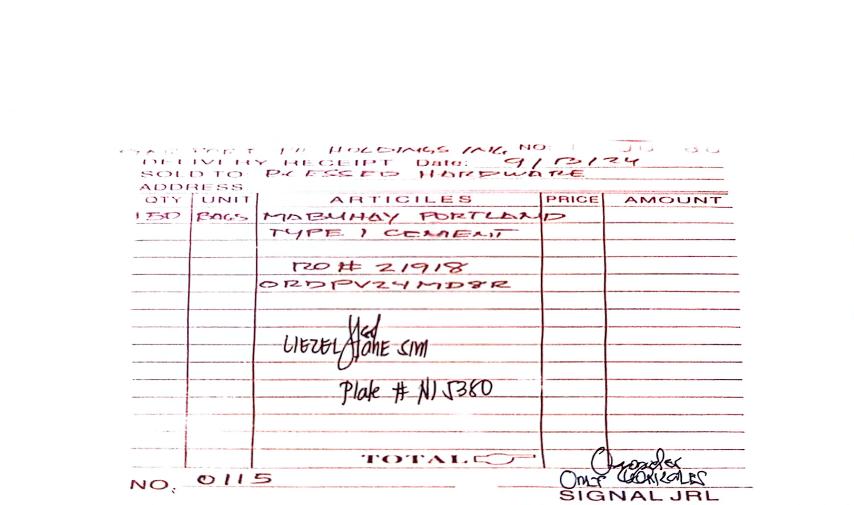 HOLDINGS INC. NO.
DELIVERY RECEIPT Date: 9/13/24
SOLD TO BLESSED HARDWARE
ADDRESS
QTY UNIT ARTICILES PRICE AMOUNT
150 BAGS MABUHAY PORTLAND
TYPE 1 CEMENT
PO # 21918
ORDPV24MD8R
LIEZEL JANE SIM
Plate # NIJ5380
TOTAL
NO. 0115
GONZALES
SIGNAL JRL